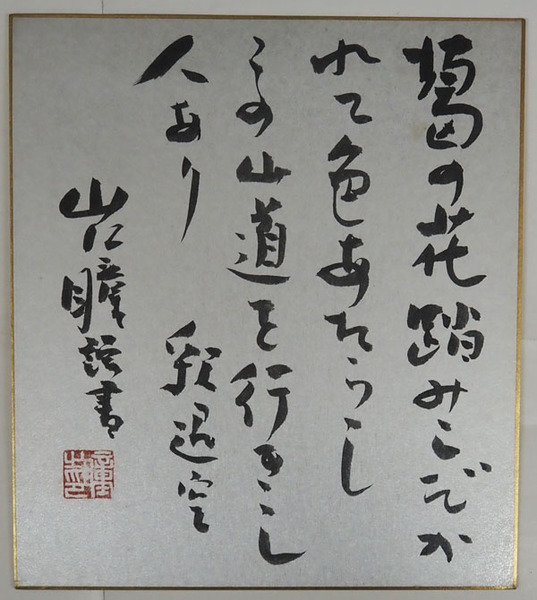 葛の花踏みしだか
れて色あたらし
この山道を行きし
人あり
釈迢空
山口瞳
書